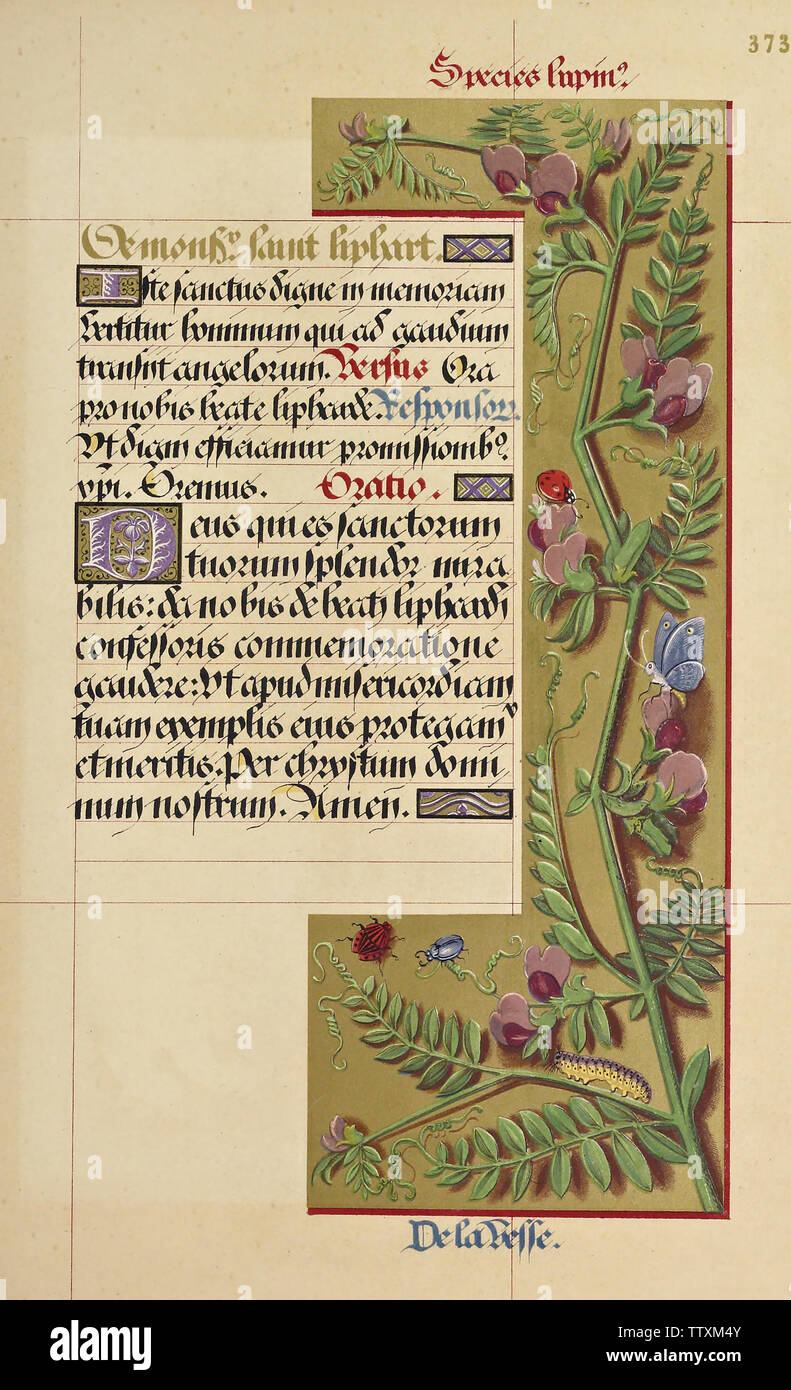 373
Species lupin⁹.
De monsʳ. saint liphart.
Iste sanctus digne in memoriam
vertitur hominum qui ad gaudium
transiit angelorum. Versus Ora
pro nobis beate liphade. Responsor.
Ut digni efficiamur promissionib⁹.
xpi. Oremus. Oratio.
Deus qui es sanctorum
tuorum splendor mira
bilis: da nobis de beati liphadi
confessoris commemoratione
gaudere: Ut apud misericordiam
tuam exemplis eius protegamʳ
et meritis. Per christum domi
num nostrum. Amen.
De la Vesse.
alamy
Image ID: TTXM4Y
www.alamy.com